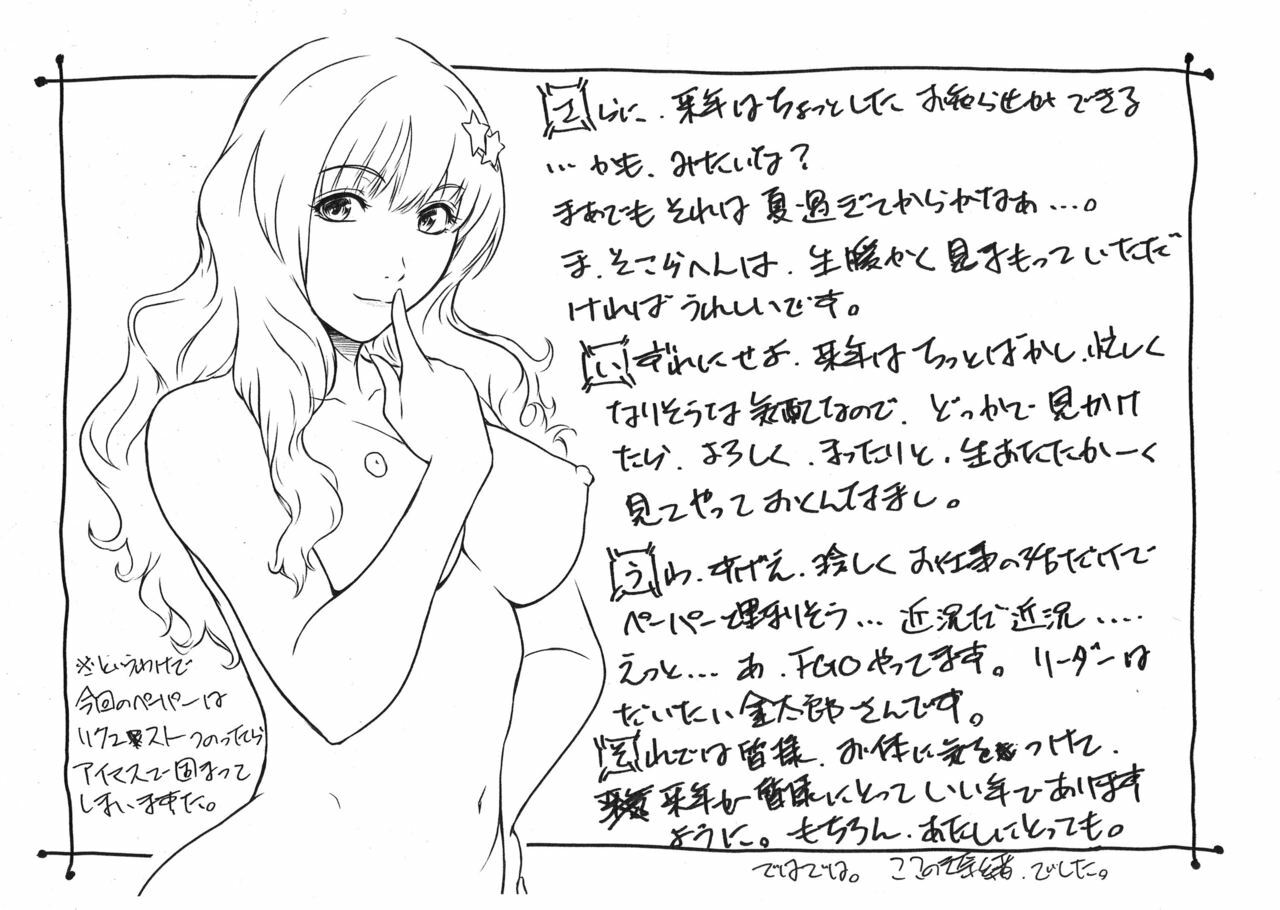 さらに、来年はちょっとしたお知らせができる
…かも、みたいな？
まあでもそれは夏過ぎてからかなあ…。
ま、そこらへんは、生暖かく見まもっていただだ
ければうれしいです。
いずれにせよ、来年はちっとばかし、忙しく
なりそうな気配なので、どっかで見かけ
たら、よろしく、まったりと、生あたたかーく
見てやっておくんなまし。
うわ、すげえ、珍しくお仕事の話だけで
ペーパー埋まりそう…近況だ近況....
えっと…あ、FGOやってます。リーダーは
だいたい金太郎さんです。
それでは皆様、お体に気をつけて、
来年が皆様にとっていい年であります
ように。もちろん、あたしにとっても。
ではでは。 ここのき奈緒、でした。
※というわけで
今回のペーパーは
リクエストつのったら
アイマスで固まって
しまいますた。